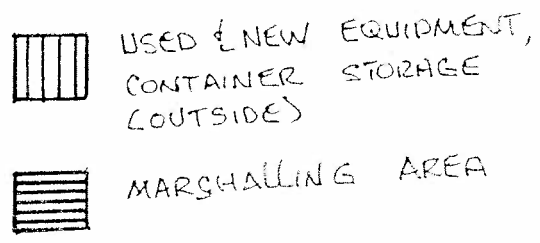 USED & NEW EQUIPMENT,
CONTAINER STORAGE
(OUTSIDE)
MARSHALLING AREA